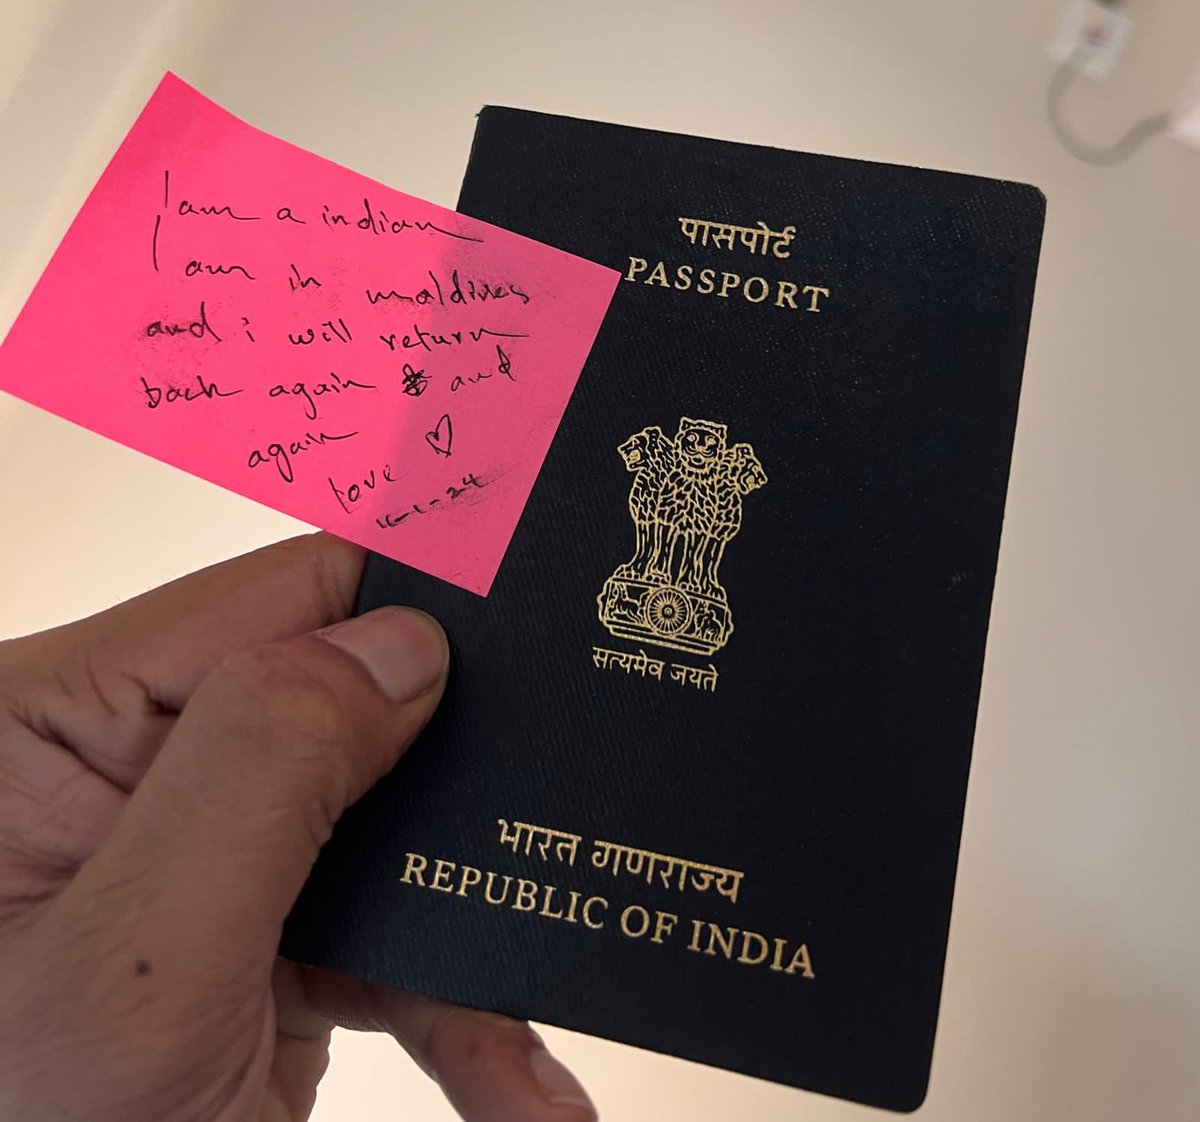 I am a indian
I am in maldives
and i will return
back again and
again
love
पासपोर्ट
PASSPORT
सत्यमेव जयते
भारत गणराज्य
REPUBLIC OF INDIA